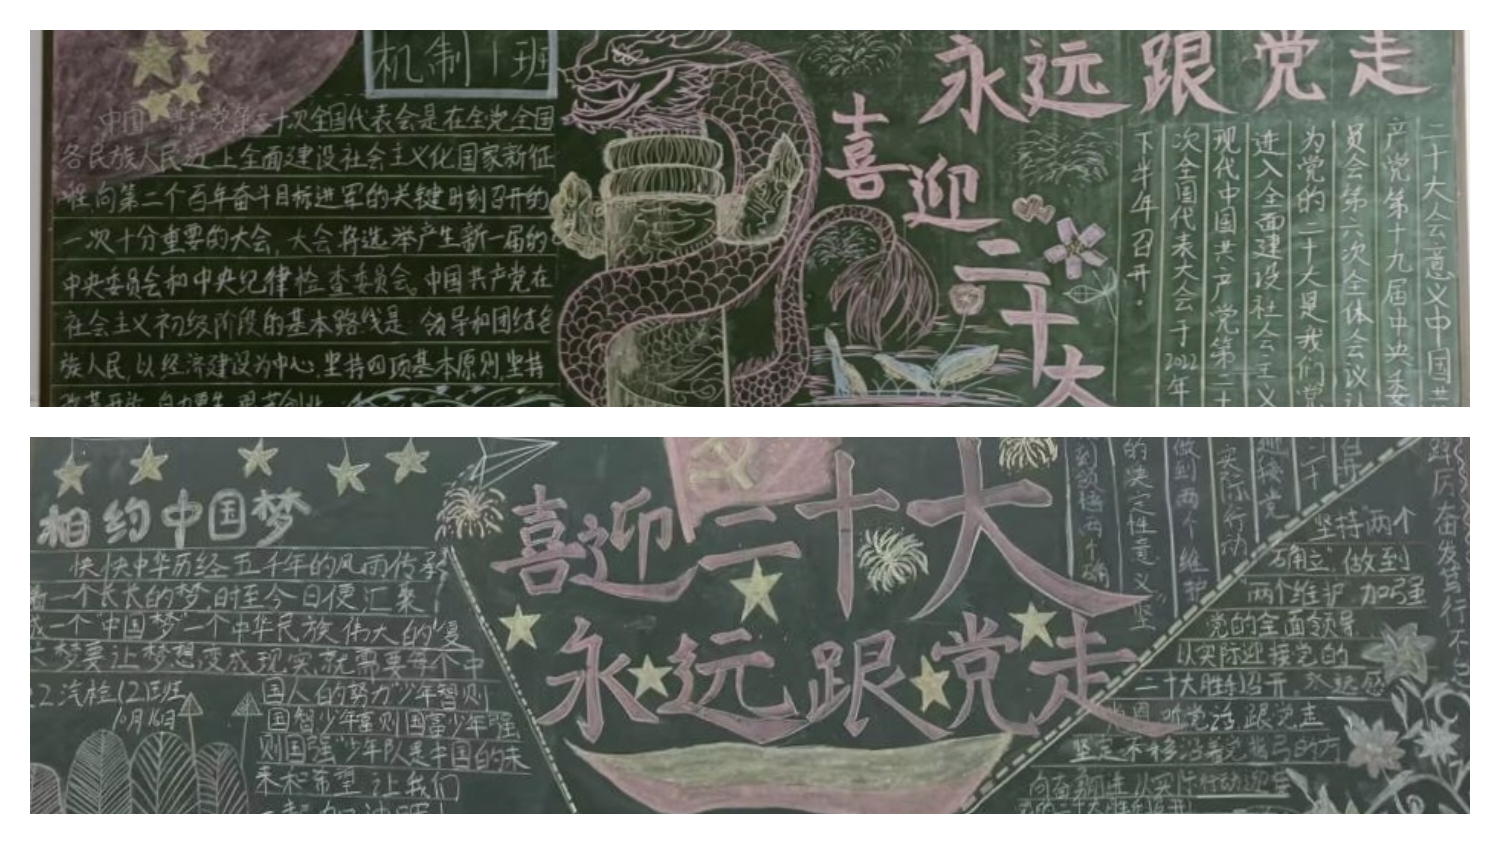 机制1班
中国共产党第二十次全国代表会是在全党全国
各民族人民迈上全面建设社会主义化国家新征
程向第二个百年奋斗目标进军的关键时刻召开的
一次十分重要的大会,大会将选举产生新一届的
中央委员会和中央纪律检查委员会。中国共产党在
社会主义初级阶段的基本路线是 领导和团结各
族人民,以经济建设为中心,坚持四项基本原则,坚持
永远跟党走
喜迎二十大
二十大会意义中国共
产党第十九届中央委
员会第六次全体会议认
为党的二十大是我们党
进入全面建设社会主义
现代中国共产党第二十
次全国代表大会于2022年
下半年召开.
相约中国梦
怏怏中华历经五千年的风雨传承
着一个长长的梦,时至今日便汇聚
成一个"中国梦"一个中华民族伟大的复
梦要让梦想变成现实就需要每个中
国人的努力"少年智则
国智少年富则国富少年强
则国强"少年队是中国的未
来和希望 让我们
22汽检12班
10月16日
喜迎二十大
永远跟党走
到领悟两个确
的决定性意义"坚
做到两个维护
迎接党
实际行动
二十
召开
踔厉奋发笃行不怠
坚持"两个
确立",做到
"两个维护"加强
党的全面领导
以实际迎接党的
二十大胜利召开,永远感
党恩 听党话 跟党走
坚定不移沿着党指引的方
向奋勇前进,以实际行动迎接
党的二十大胜利召开!